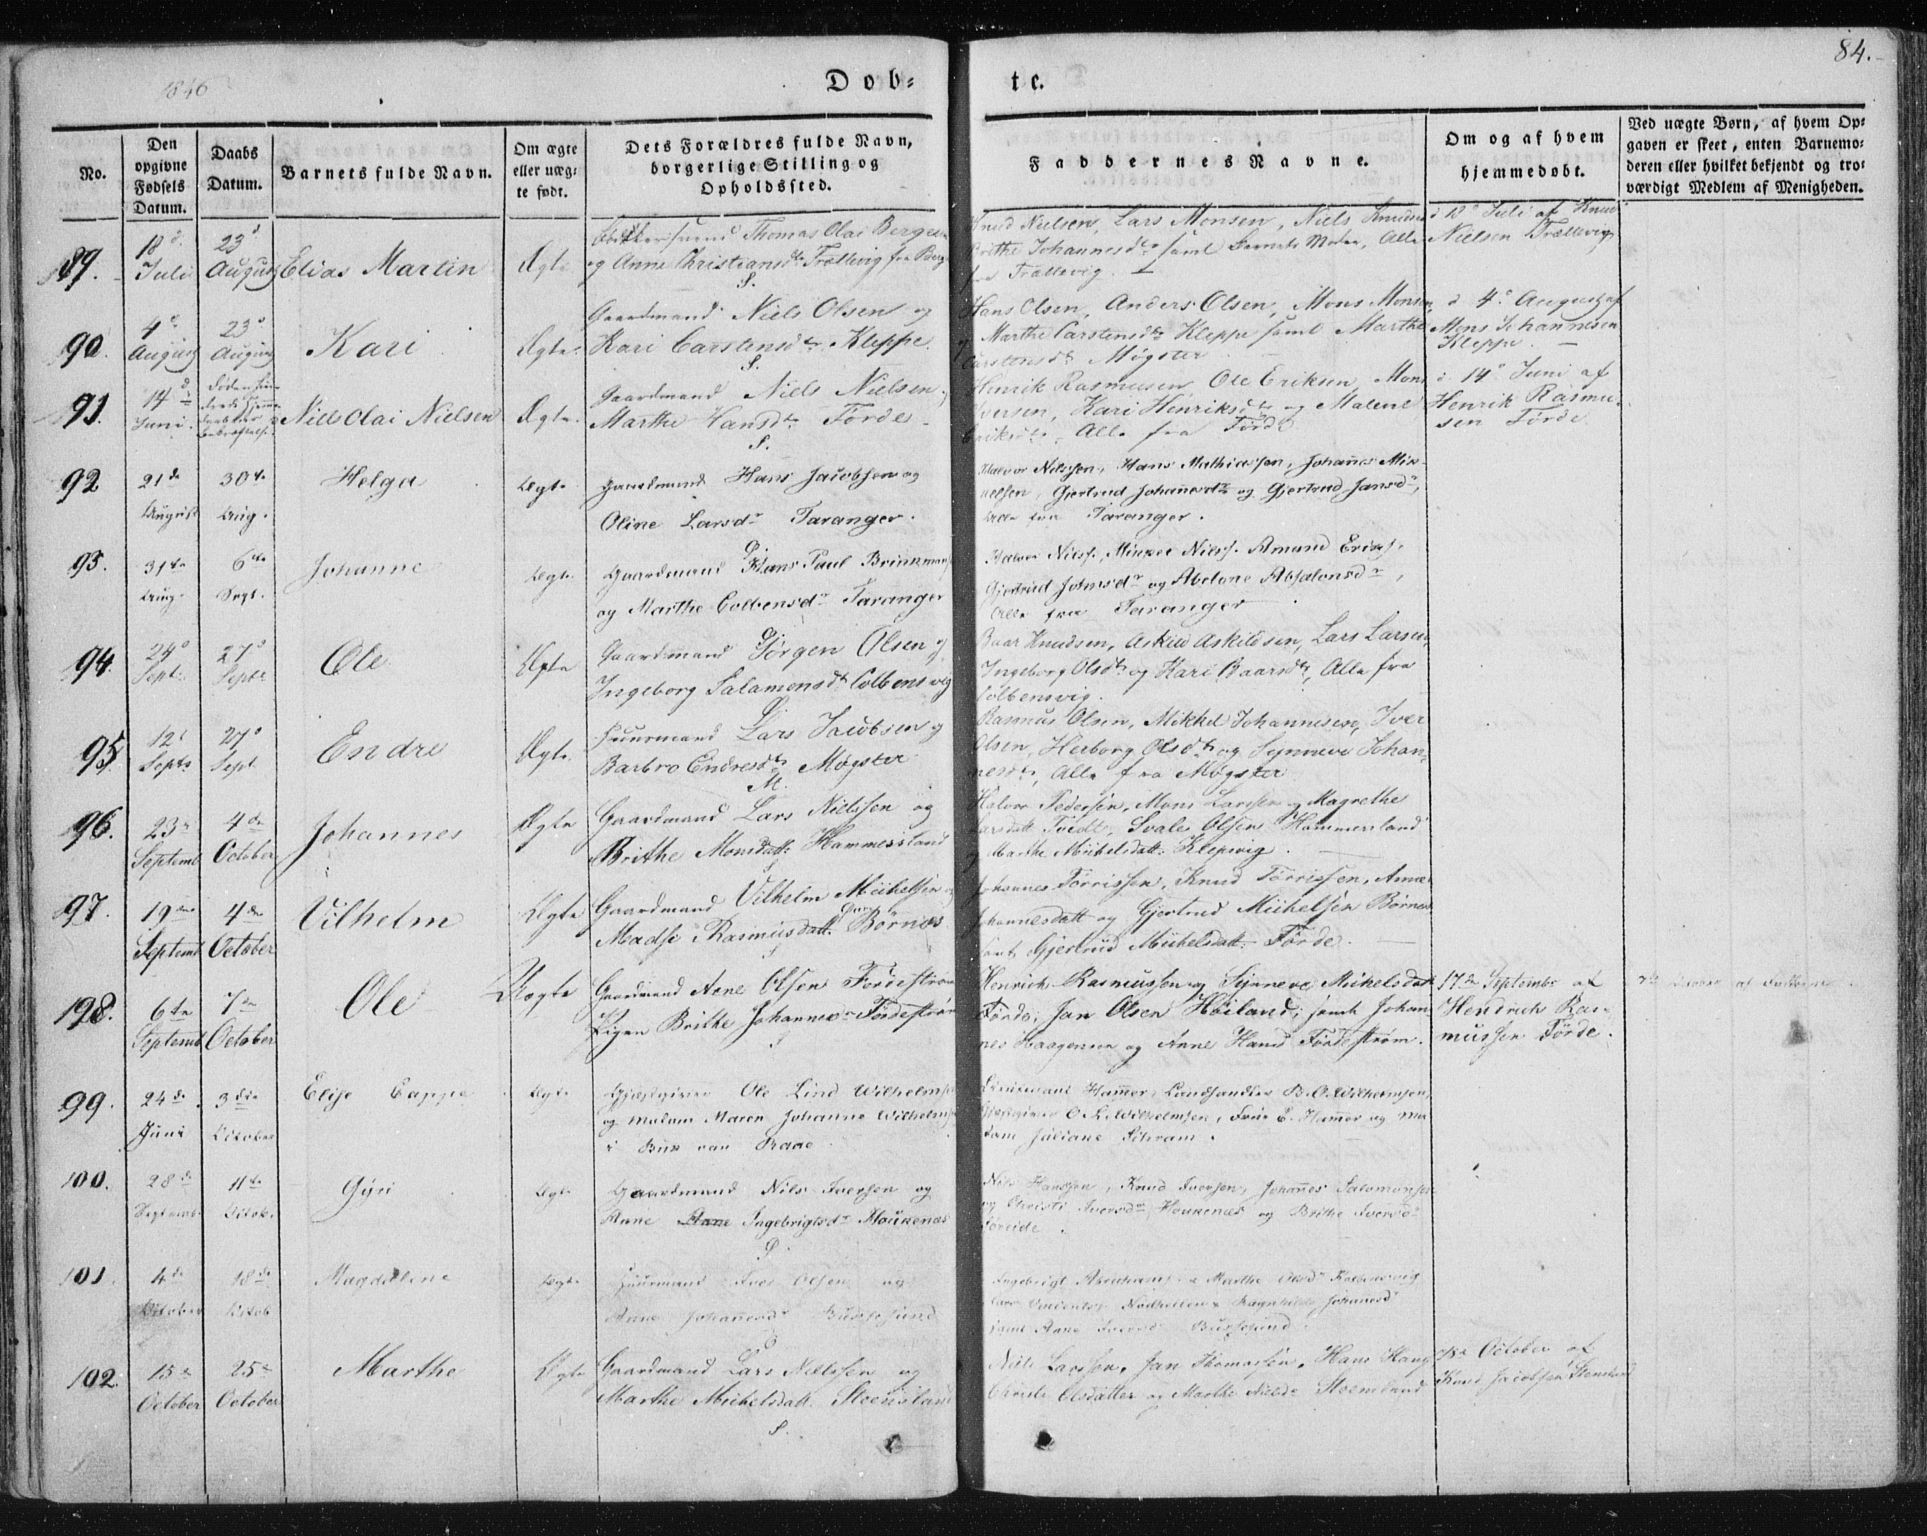 1846
Dob-
te.
84.
No.
Den opgivne Fødsels Datum.
Daabs Datum.
Barnets fulde Navn.
Om ægte eller uægte født.
Dets Forældres fulde Navn, borgerlige Stilling og Opholdssted.
Faddernes Navne.
Om og af hvem hjemmedøbt.
Ved uægte Børn, af hvem Op-
gaven er skeet, enten Barnemo-
deren eller hvilket bekjendt og tro-
værdigt Medlem af Menigheden.
89. 18d Juli 23d August Elias Martin Ægte
Thomas Olai Bergesen
og Anne Christiansdtr Trællevig fra
S.
Knud Nielsen, Lars Monsen, Niels Knudsen
Brithe Johannesdtr samt Barnets Moder, Alle
fra Trællevig.
d 18d Juli af Knud
Nielsen Trællevig
90. 4d August 23d August Kari Ægte.
Gaardmand Niels Olsen og
Kari Carstensdtr Kleppe
S.
Hans Olsen, Anders Olsen, Mons Monsen,
og Marthe Carstensdtr Kleppe samt Marthe
Carstensdtr Møgster
d 4d August af
Mons Johannesen
Kleppe.
91. 14d Juni. Niels Olai Nielsen Ægte.
Gaardmand Niels Nielsen
Marthe Hansdtr Førde
S.
Henrik Rasmusen, Ole Eriksen, Mons
Iversen, Kari Henriksdtr og Malene
Eriksdtr, Alle fra Førde
d 14d Juni af
Henrik Rasmu-
sen Førde
92 21de August 30te Aug. Helga Ægte
Gaardmand Hans Jacobsen og
Oline Larsdr Taranger.
Halvor Nilssen, Hans Mathiassen, Johanes Mik-
kelsen, Gjertrud Johanesdr og Gjertrud Jansdr,
Alle fra Taranger.
93. 31te Aug. 6te Sept. Johanne Ægte
Gaardmand Hans Paul Brinkman
og Marthe Colbensdr Taranger
Halvor Nilss. Mikkel Nilss. Amund Erikss.
Gjertrud Johnsdr og Abelone Absalonsdr,
Alle fra Taranger
94. 24d Sept. 27d Sept. Ole Ægte
Gaardmand Jørgen Olsen og
Ingeborg Salamensdtr Colbensvig
Baar Knudsen, Askild Askildsen, Lars Larsen,
Ingeborg Olsdtr og Kari Baarsdtr, Alle fra
Colbensvig.
95. 12d Septr 27d Sept. Endre Ægte.
Huusmand Lars Jacobsen og
Barbro Endresdtr Møgster
M.
Rasmus Olsen, Mikkel Johannesen, Iver
Olsen, Herborg Olsdtr og Synneve Johan-
nesdtr, Alle fra Møgster
96. 23de Septemb. 4de October Johannes Ægte
Gaardmand Lars Nielssen og
Brithe Monsdatt. Hammersland
S
Halvor Pedersen, Mons Larssen og Magrethe
Larsdatt Tvedt, Svale Olsen Hammersland
og Marthe Michelsdatt. Klepvig.
97. 19de Septemb. 4de October Vilhelm Ægte
Gaardmand Vilhelm Michelsen og
Madsi Rasmusdatt. Børnes
S
Johannes Tørrissen, Knud Tørrissen, Anna
Johannesdatt og Gjertrud Michelsen Børnes
samt Gjertrud Michelsdatt. Førde.
198. 6te Septemb. 7de October Ole Uægte
Gaardmand Arne Olsen Førdestrøm
Pigen Brithe Johannesdr Førdestrøm
Henrich Rasmussen og Synneve Mikelsdatt
Førde; Jan Olsen Høiland; samt Johan-
nes Haagensen og Anne Hansd Førdestrøm.
17de Septembr af
Hendrich Ras-
mussen Førde.
7de October af Faderen
99. 24de Juni 3die October Elise Cappe Ægte
Gjæstgiver Ole Lind Wilhelmsen
og Madam Maren Johanne Wilhelmsen
i Bukken Raae
Lieutenant Hammer, Landhandler B. O. Wilhelmsen,
Gjæstgiver O. L. Wilhelmsen, Frue E. Hammer og Ma-
dam Juliane Schram.
100. 28de Septemb. 11te Octob. Gyri Ægte
Gaardmand Nils Iversen og
Anne Ingebrigtsdr Houkenæs
S.
Nils Hanssen, Knud Iversen, Johanes Salomonsen
og Christi Iversdr Houkenæs og Brithe Iversdr
Søreide.
101. 4de October 18de Octob Magdalene Ægte
Huusmand Iver Olsen og
Anne Johanesdr Buskesund
Marthe Olsdr Kolbensvig
Ragnhilde Johanesd
samt Anne Iversd Buskesund.
102 15de October 25de October Marthe Ægte
Gaardmand Lars Nielssen og
Marthe Michelsdatt. Steensland
S.
Niels Larssen, Jan Thomassen, Hans Haug
Christi Olsdatter og Marthe Nielsdr Steensland
18de October af
Knud Jacobsen Stensland